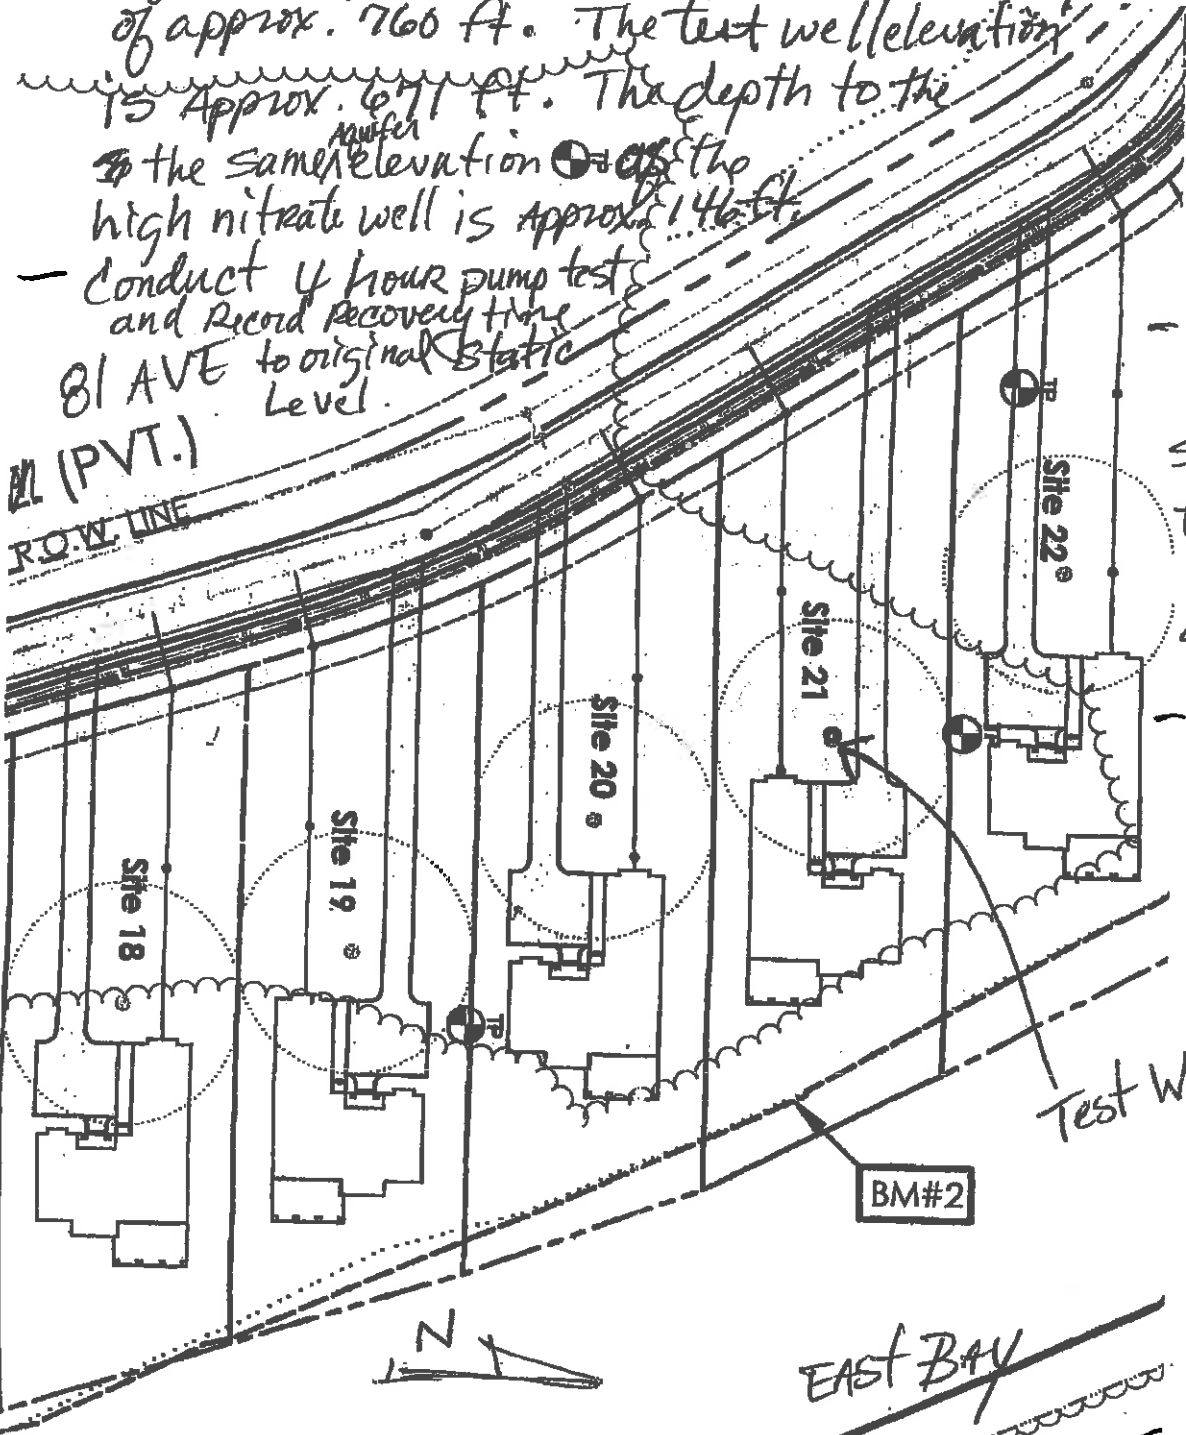 of approx. 760 ft. The test well elevation
is Approx. 671 ft. The depth to the
the same Aquifer elevation as the
high nitrate well is Approx. 146 ft.
Conduct 4 hour pump test
and Record Recovery time
to original static
Level.
81 AVE
(PVT.)
R.O.W. LINE
TP
Site 22
Site 21
Site 20
Site 19
Site 18
TP
Test W
BM#2
N
EAST BAY